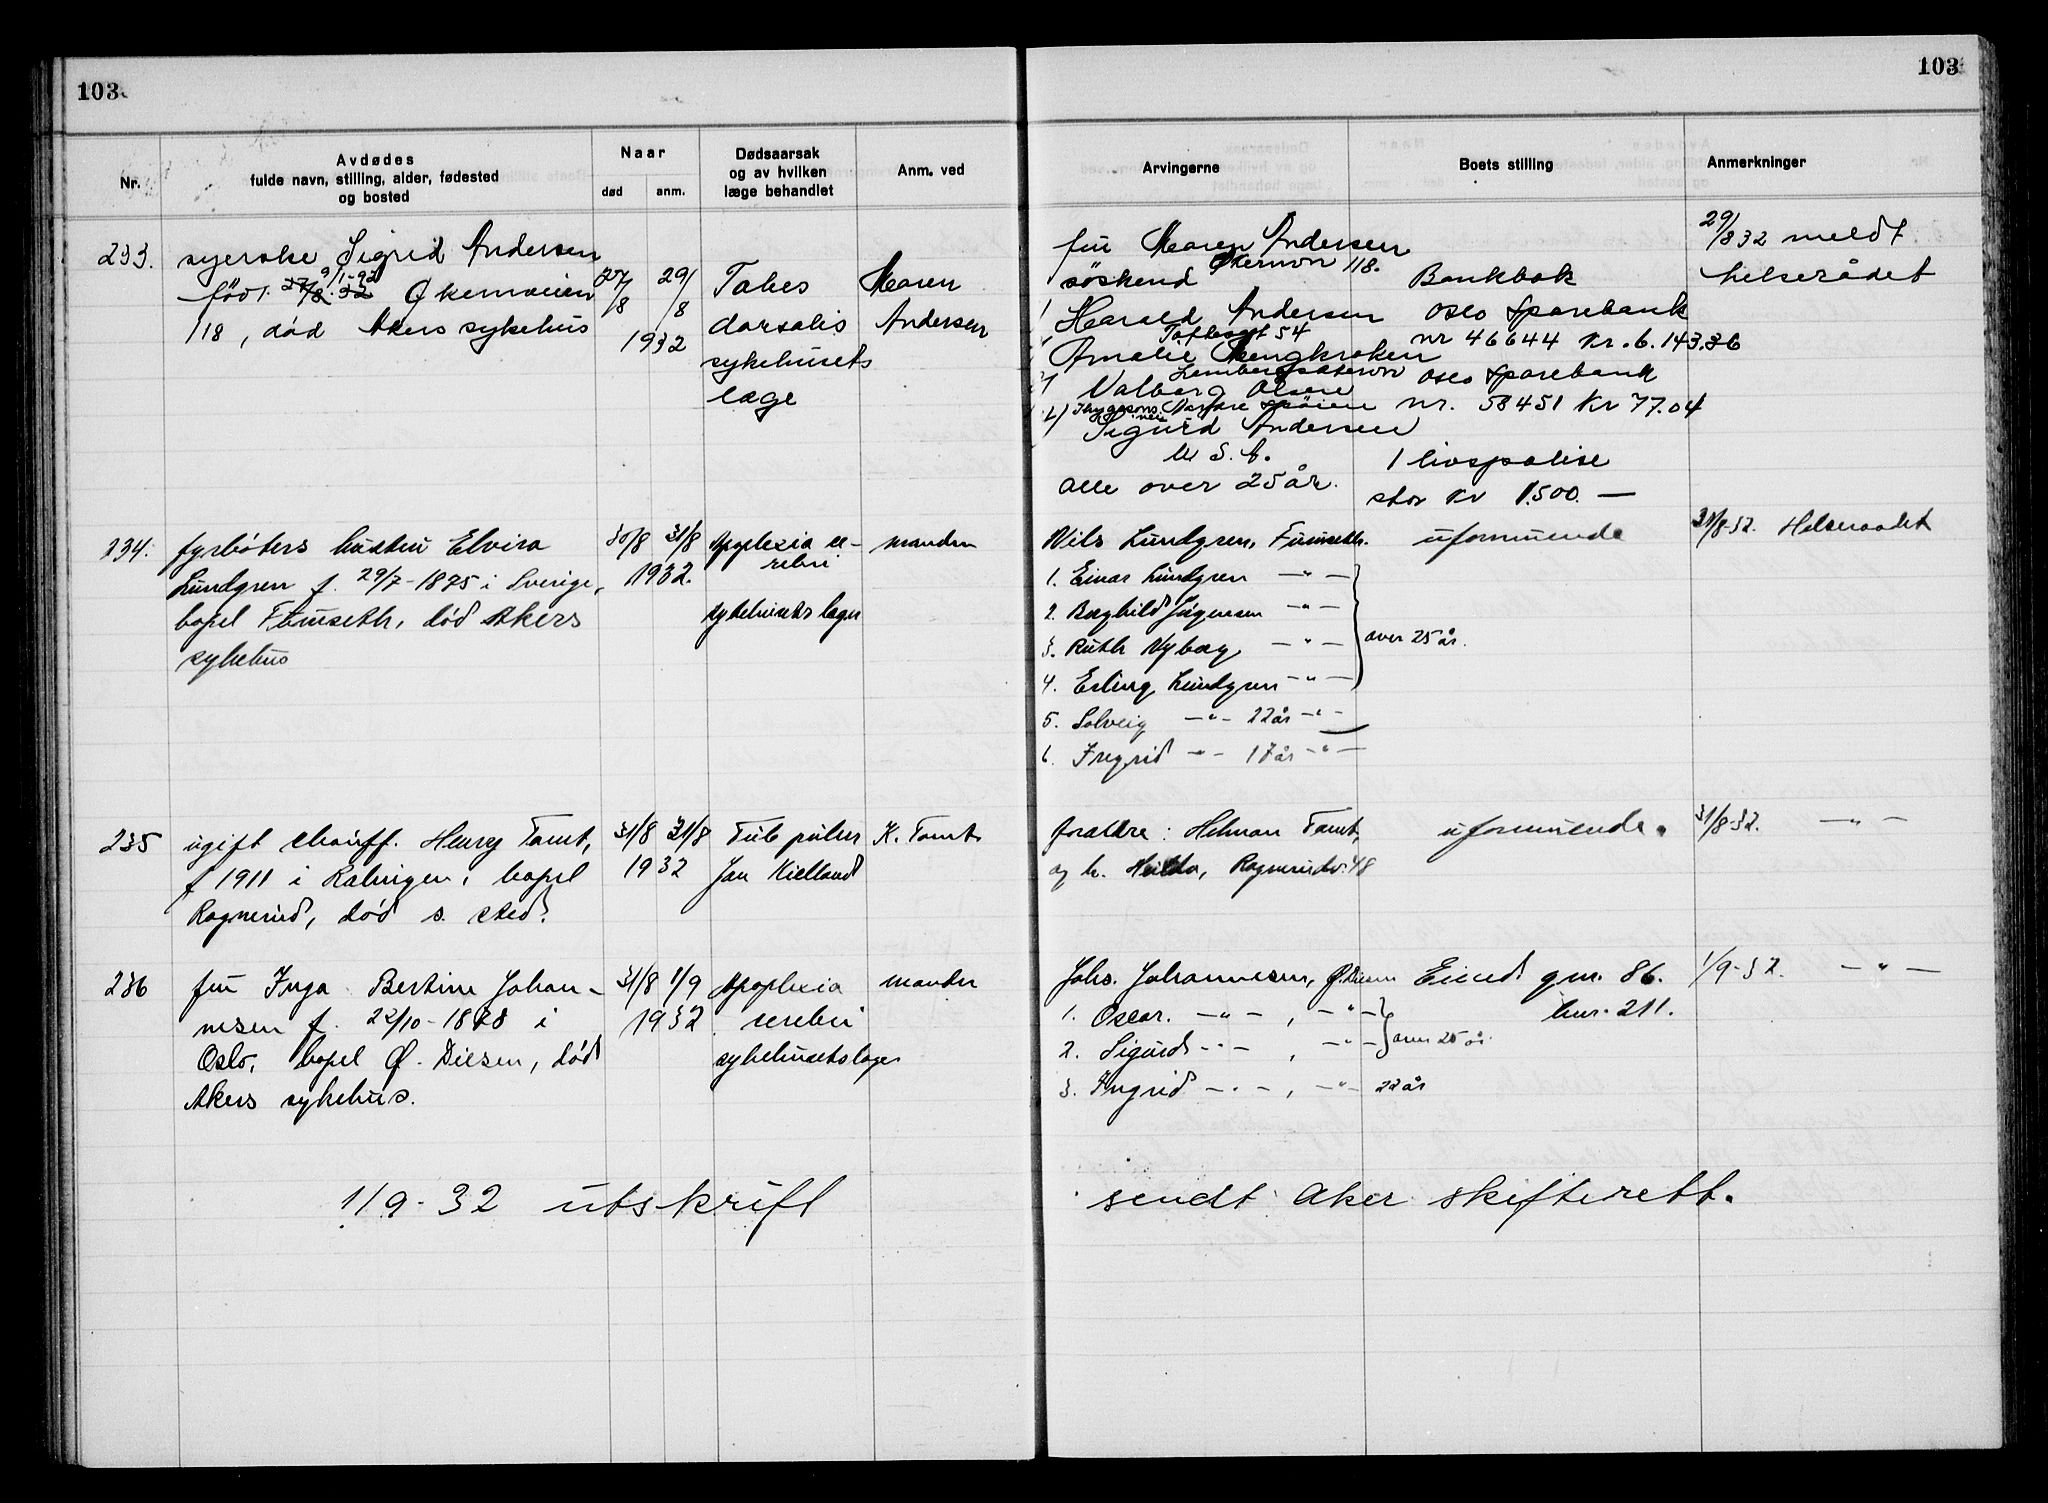 103
103
Nr.
Avdødes
fulde navn, stilling, alder, fødested
og bosted
Naar
død
anm.
Dødsaarsak
og av hvilken
læge behandlet
Anm. ved
Arvingerne
Boets stilling
Anmerkninger
233.
syerske Sigrid Andersen
9/1-92
født 27/8.32 Økernveien
118, død Akers sykehus
27/8
29/8
1932
Tabes
dorsalis
sykehusets
læge
Maren
Andersen
fru Maren Andersen
Økernvn 118.
søskend
1 Harald Andersen
54
Amalie
Valborg Olsen
4) Sigurd Andersen
U.S.A.
Alle over 25 år.
Bankbok
Oslo Sparebank
nr 46644 Kr. 6.143.36
Oslo Sparebank
nr. 58451 Kr 77.04
1 livspolise
stor Kr 1.500.—
29/8 32 meldt
helserådet
234.
fyrbøters hustru Elvira
Lundgren f. 29/7-1875 i Sverige,
bopel Furuseth, død Akers
sykehus
30/8 31/8
1932.
Apoplexia ce-
rebri
sykehusets læger
manden
Nils Lundgren, Furuseth.
1. Einar Lundgren —"—
2. Borghild Jørgensen —"—
3. Ruth Nyborg —"—
4. Erling Lundgren —"—
over 25 år.
5. Solveig —"— 22 år —"—
6. Ingrid —"— 17 år —"—
uformuende
31/8-32. Helseraadet
235
ugift chauff. Henry Tomt,
f 1911 i Rælingen, bopel
Rognerud, død s. sted.
31/8 31/8
1932
Tub pulm
Jan Kielland
K. Tomt
forældre: Helman Tomt,
og h. Hilda, Rognerudv. 48
uformuende.
31/8-32. —"—
236
fru Inga Bertine Johan-
nesen f. 22/10-1878 i
Oslo, bopel Ø. Disen, død
Akers sykehus.
31/8 1/9
1932
Apoplexia
cerebri
sykehusets læger
manden
Johs. Johannesen, Ø. Disen
1. Oscar. —"—, —"—
2. Sigurd —"—, —"—
over 25 år.
3. Ingrid —"—, —"— 22 år
Eiend. gnr. 86.
bnr. 211.
1/9-32. —"—
1/9-32 utskrift
sendt Aker skifterett.